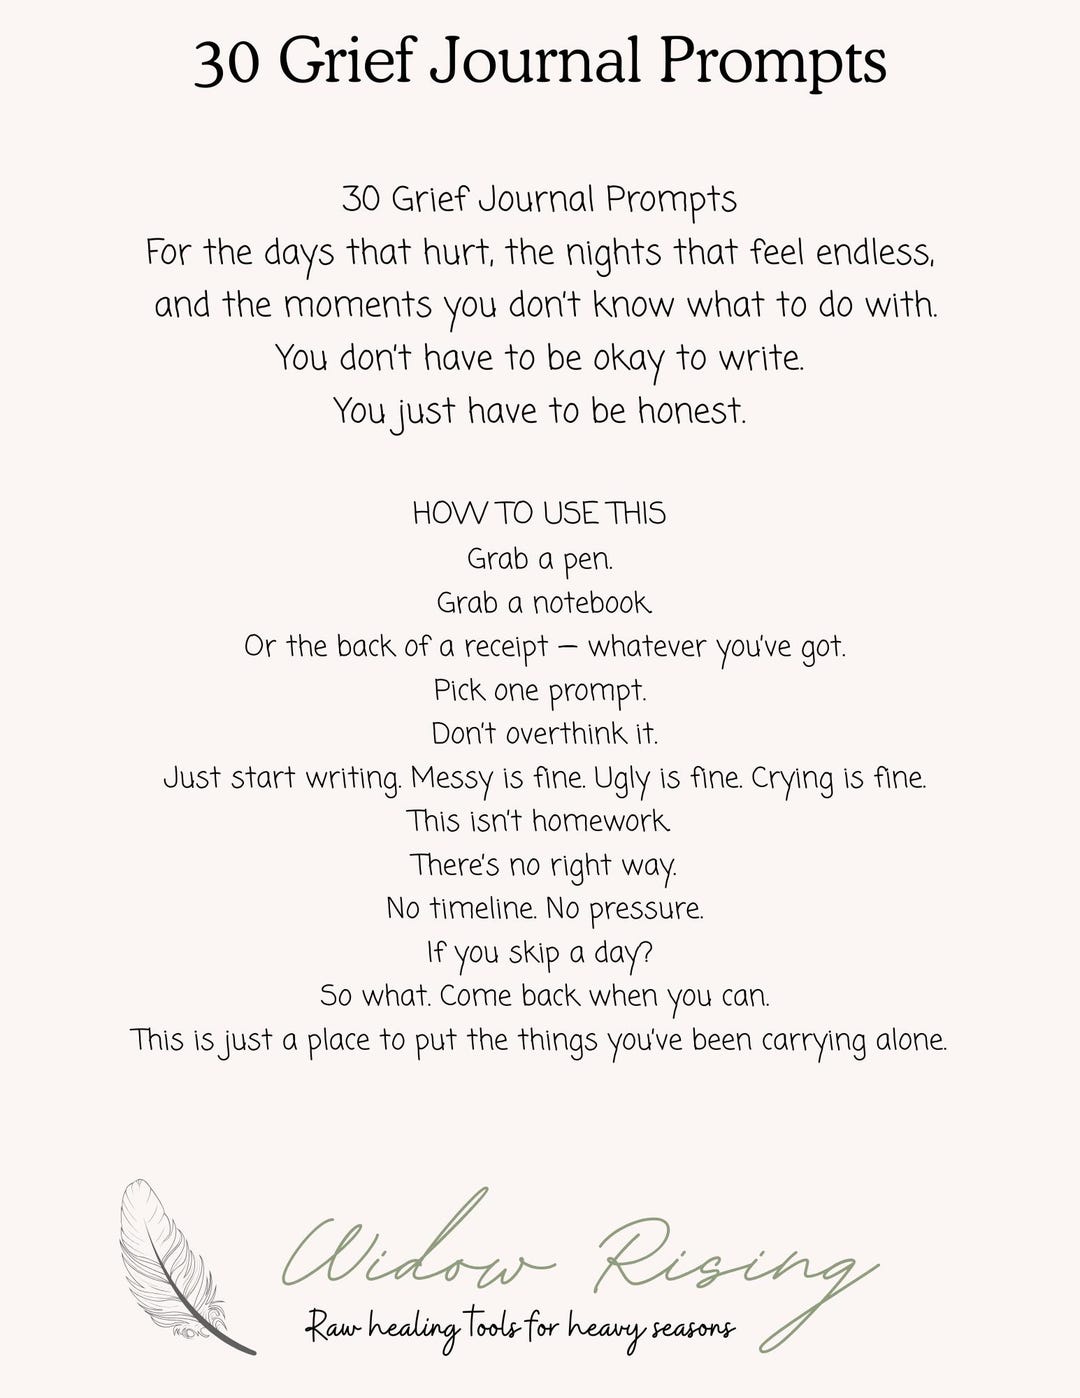 30 Grief Journal Prompts
30 Grief Journal Prompts
For the days that hurt, the nights that feel endless,
and the moments you don't know what to do with.
You don't have to be okay to write.
You just have to be honest.
HOW TO USE THIS
Grab a pen.
Grab a notebook.
Or the back of a receipt — whatever you've got.
Pick one prompt.
Don't overthink it.
Just start writing. Messy is fine. Ugly is fine. Crying is fine.
This isn't homework.
There's no right way.
No timeline. No pressure.
If you skip a day?
So what. Come back when you can.
This is just a place to put the things you've been carrying alone.
Widow Rising
Raw healing tools for heavy seasons